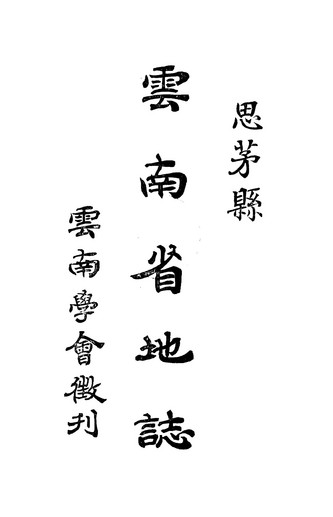 思茅縣
雲南省地誌
雲南學會徵刊